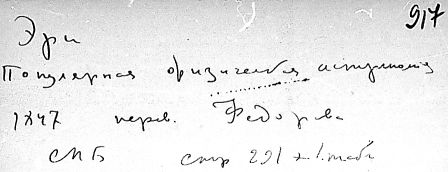 917
Эри
Популярная физическая астрономия
1847 перев. Федорова
СПБ стр 291 + 1 табл